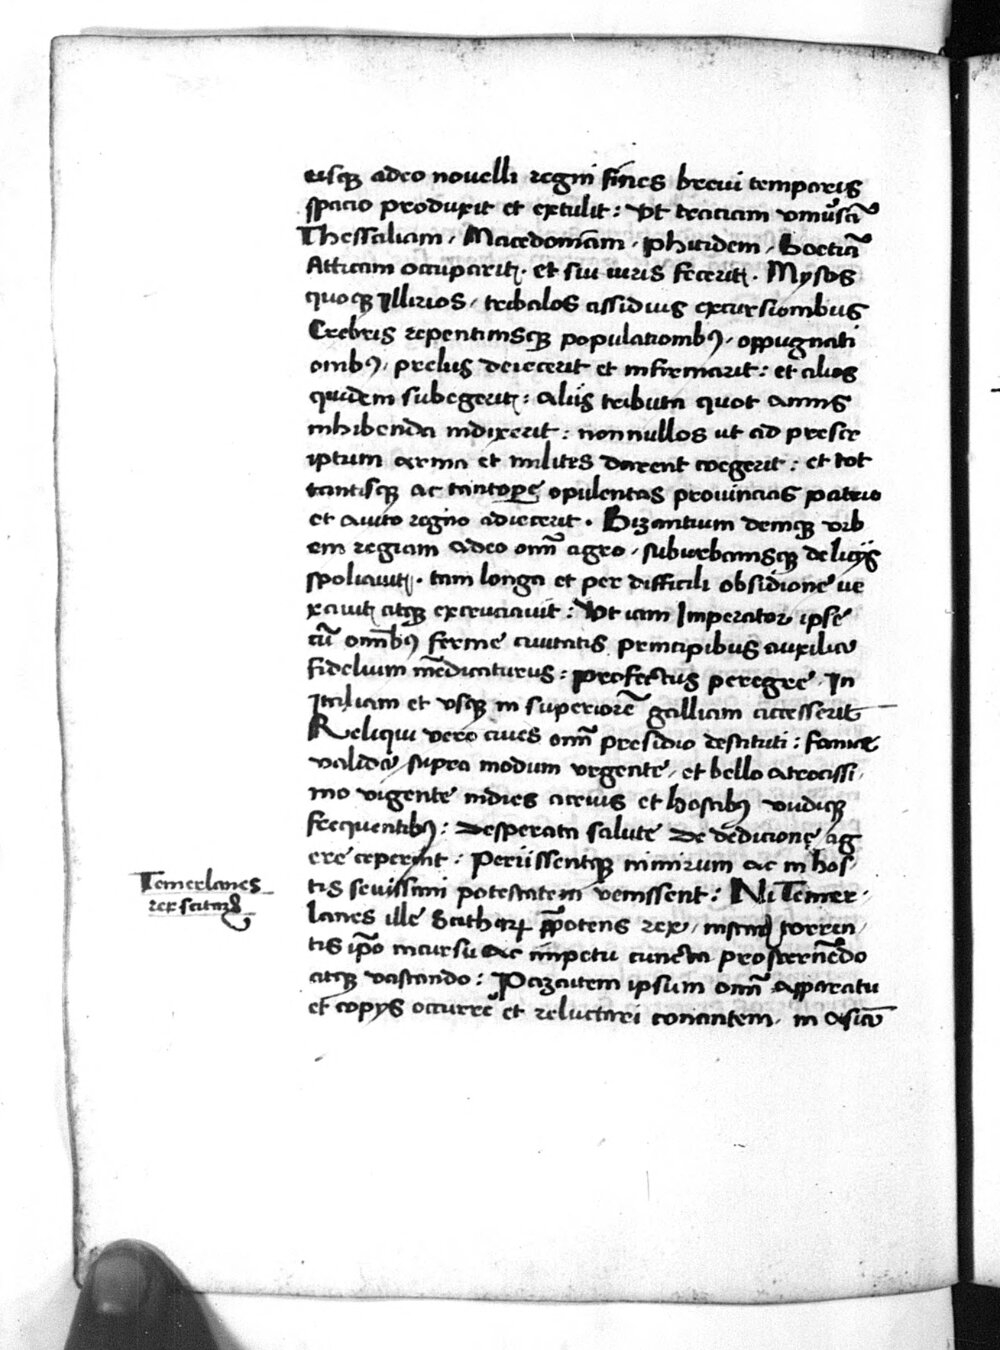 eisq; adeo nouelli regni fines breui temporis
spacio produxit et extulit: Vt traciam vniu̓sā
Thessaliam, Macedoniam, phocidem, Boetiā
Atticam occuparit, et sui iuris fecerit. Mysos
quoq; Illirios, tribalos assiduis excursionibus
Crebris repentinisq; populationib9, oppugnati
onib9, prelijs deiecerit et infirmarit: et alios
quidem subegerit: alijs tributa quot annis
inhibenda indixerit: nonnullos ut ad prescr
iptum arma et milites darent coegerit: et tot
tantisq; ac tantopę opulentas prouincias patrio
et auito regno adiecerit. Bizantium deniq; vrb
em regiam adeo omī agro, suburbanisq; delicijs
spoliauit, tam longa et per difficili obsidione ve
xauit atq; excruciauit: Vt iam Imperator ipse
cū omīb9 ferme ciuitatis principibus auxilia
fidelium mēdicaturus: profectus peregre, In
Italiam et vsq; in superiorē galliam accesserit
Reliqui vero ciues omī presidio destituti: fame
valida supra modum vrgente, et bello atrocissi,
mo vigente indies acrius et hostib9 vndiq;
frequentib9: desperata salute de dedicione ag
ere ceperint: Perijssentq; nimirum ac in hos,
tis seuissimi potestatem venissent: Ni Temer,
lanes ille Scithaꝝ p̄potens rex, instar torren,
tis ip̄o incursu ac impetu cuncta prosternēdo
atq; vastando: Pazaitem ipsum omī apparatu
et copijs occurrē et reluctari conantem, in asia
Temerlanes
rex scitaꝝ